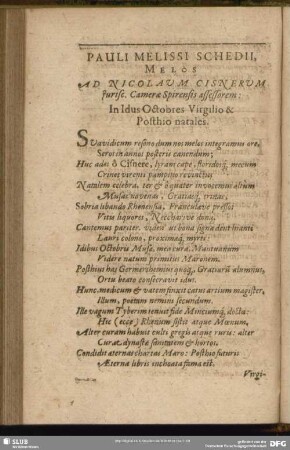 PAULI MELISSI SCHEDII,
MELOS
AD NICOLAUM CISNERUM
Jurisc. Cameræ Spirensis assessorem:
In Idus Octobres Virgilio &
Posthio natales.
SUavidicum resono dum nos melos integramus ore,
Seros in annos posteris canendum;
Huc ades ô Cisnere, lyram cape, mecum
Crines virenti pampino revinctus
Natalem celebra, ter & quater invocemus altum
Musas novenas, Gratiasq; trinas;
Sobria libando Rhenensia, Francidose pressis
Vitis liquores, Nectareisve donis.
Cantemus pariter. videt ut bona signa dent Hianti
Lauri colono, proximæq; mirti:
Idibus Octobris Musæ, mea cura, Mantuanum
Videre natum primitus Maronem.
Posthius has Germerſhemius quoq, Gratiarũ alumnus,
Ortu beato consecravit idus.
Hunc medicum & vatem finxit catus artium magister,
Illum, poetam nemini secundum.
Iste vagum Tyberim tenuit fide Minciumq, docta:
Hic (ecce) Rhænum sistit atque Mœnum,
Alter curam habuit culti gregis atque ruris: alter
Curat dynastæ sanitatem & hortos.
Condidit æternas chartas Maro: Posthio futuris
Æterna libris inchoata fama est.
Virgi-
SLUB
DFG